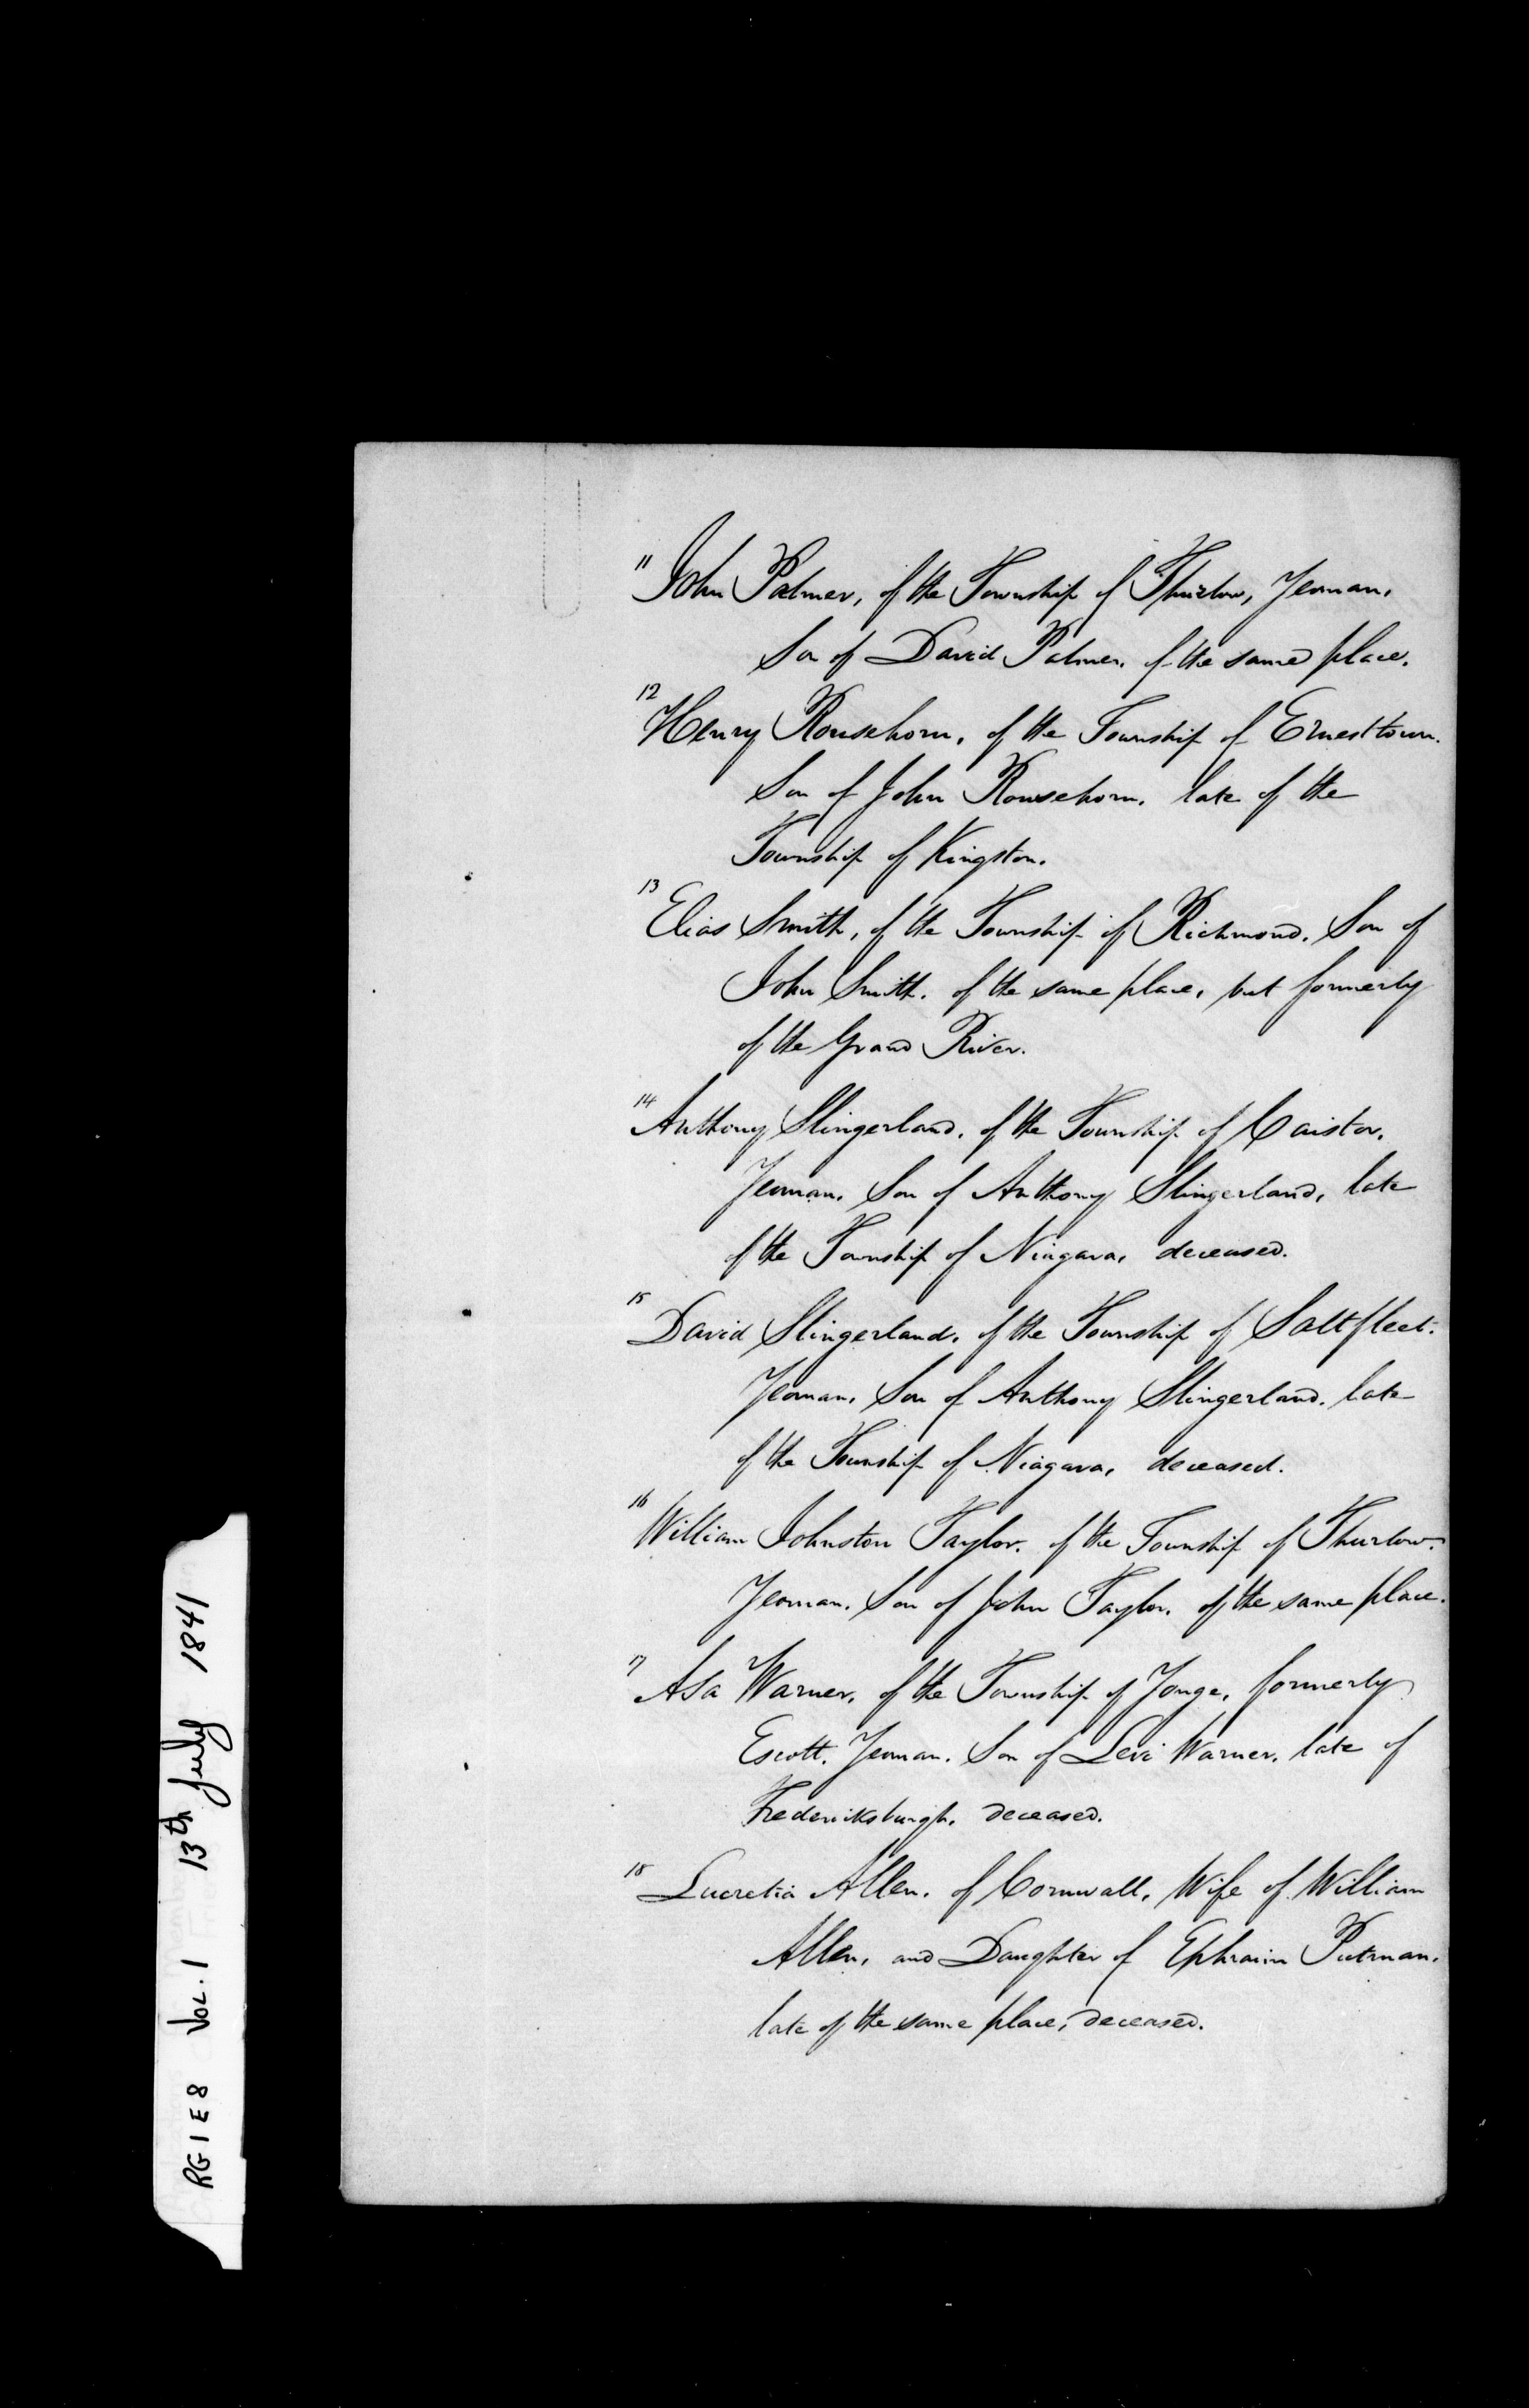 11
John Palmer, of the Township of Thurlow, Yeoman.
Son of David Palmer. of the same place.
12
Henry Rousehorn, of the Township of Ernesttown.
Son of John Rousehorn. late of the
Township of Kingston.
13
Elias Smith, of the Township of Richmond. Son of
John Smith. of the same place, but formerly
of the Grand River.
14
Anthony Slingerland. of the Township of Caistor.
Yeoman. Son of Anthony Slingerland, late
of the Township of Niagara, deceased.
15
David Slingerland. of the Township of Saltfleet.
Yeoman, Son of Anthony Slingerland. late
of the Township of Niagara, deceased.
16
William Johnston Taylor. of the Township of Thurlow.
Yeoman. Son of John Taylor. of the same place.
17
Asa Warner, of the Township of Yonge, formerly
Escott. Yeoman. Son of Levi Warner, late of
Fredericksburgh. deceased.
18
Lucretia Allen. of Cornwall, Wife of William
Allen, and Daughter of Ephraim Putman.
late of the same place, deceased.
RG1E8 VOL.1 13th July 1841